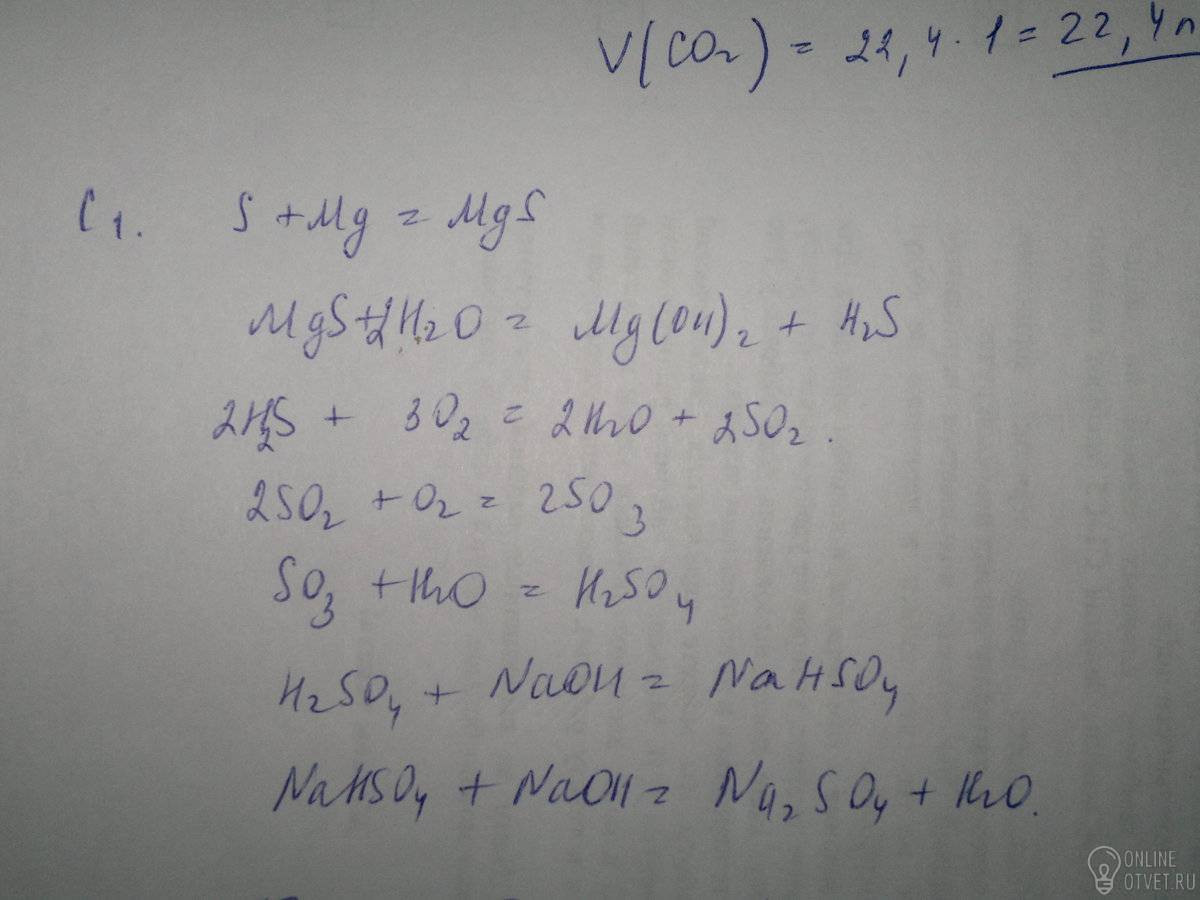 V(CO₂) = 22,4 · 1 = 22,4 л
C1. S + Mg = MgS
MgS + 2H₂O = Mg(OH)₂ + H₂S
2H₂S + 3O₂ = 2H₂O + 2SO₂.
2SO₂ + O₂ = 2SO₃
SO₃ + H₂O = H₂SO₄
H₂SO₄ + NaOH = NaHSO₄
NaHSO₄ + NaOH = Na₂SO₄ + H₂O.
ONLINE
OTVET.RU